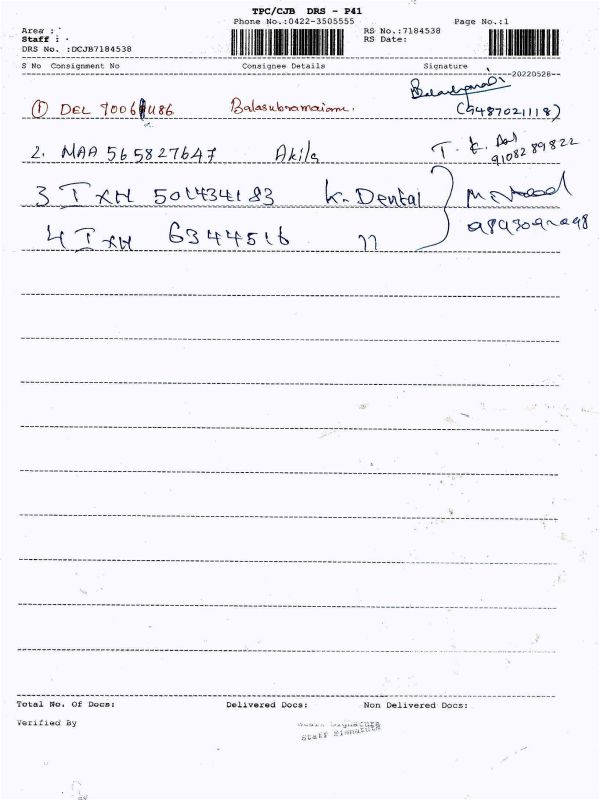 TPC/CJB DRS - P41
Phone No.:0422-3505555 Page No.:1
Area : RS No.:7184538
Staff : RS Date:
DRS No. :DCJB7184538
S No Consignment No Consignee Details Signature
20220528
① DEL 7006 486 Balasubramaiam. (9487021118)
2. MAA 565827647 Akila T. K. 9108289822
3 IXM 501434183 K. Dental
4 IXM 6344516 11
Total No. Of Docs: Delivered Docs: Non Delivered Docs:
Verified By
Staff Signature